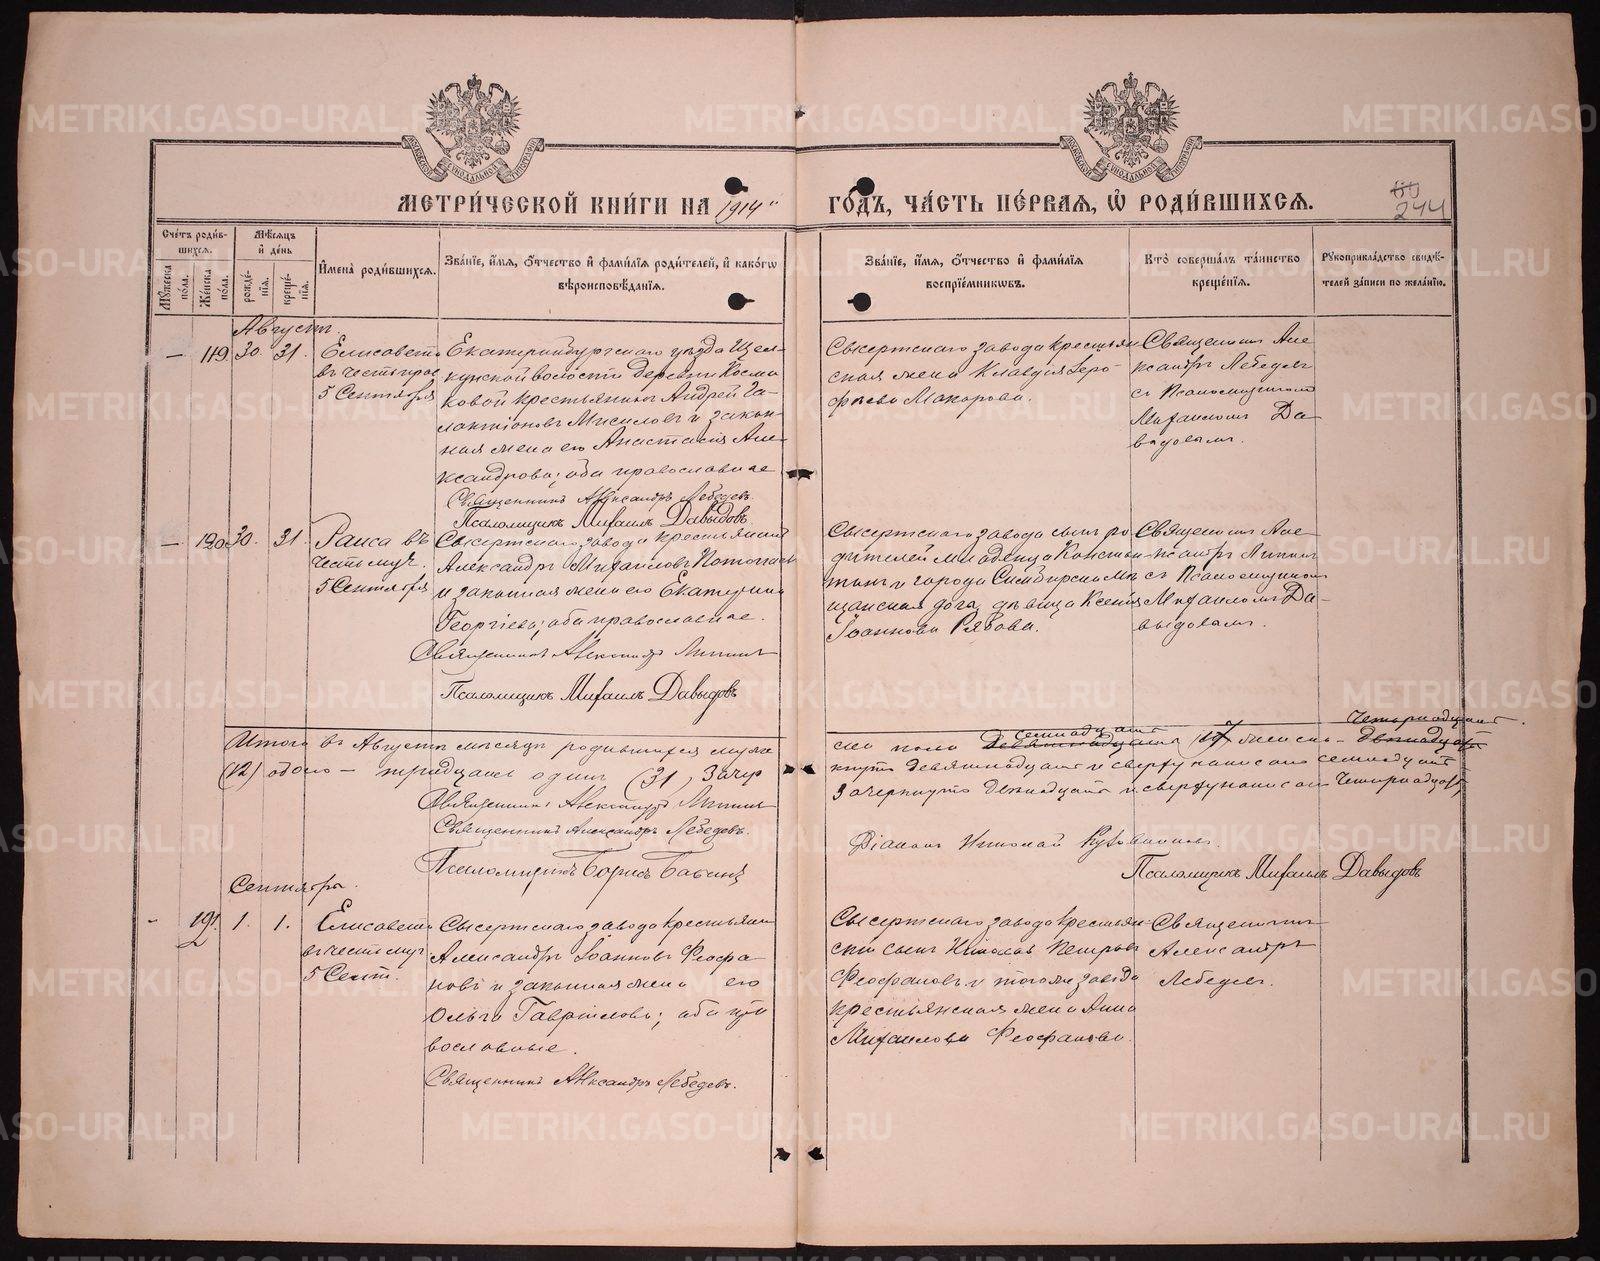 МЕТРИ́ЧЕСКОЙ КНИ́ГИ НА 1914
ГО́ДЪ, ЧА́СТЬ ПЕ́РВАЯ, Ѡ҆ РОДИ́ВШИХСЯ.
244
Сче́тъ роди́в-
шихся.
Мꙋ́жеска по́ла.
Же́нска по́ла.
Мѣ́сяцъ и҆ де́нь
рожде́-
нїя.
креще́-
нїя.
И҆мена̀ роди́вшихся.
Зва́нїе, и҆́мя, ѻ҆́тчество и҆ фами́лїя роди́телей, и҆ како́гѡ
вѣроисповѣ́данїя.
Зва́нїе, и҆́мя, ѻ҆́тчество и҆ фами́лїя
воспрїе́мникѡвъ.
Кто̀ соверша́лъ та́инство
креще́нїя.
Рꙋкоприкла́дство свидѣ́-
телей за́писи по жела́нїю.
Августъ.
— 119. 30. 31.
Елисавета
въ честь прав.
5 Сентября
Екатеринбургскаго уѣзда Щел-
кунской волости деревни Косма-
ковой крестьянинъ Андрей Га-
лактіоновъ и закон-
ная жена его Анастасія Але-
ксандрова; оба православные
Священникъ Александръ Лебедевъ.
Псаломщикъ Михаилъ Давыдовъ
Сысертскаго завода крестьян-
ская жена Клавдія Іеро-
фѣева Макарова.
Священникъ Але-
ксандръ Лебедевъ
съ Псаломщикомъ
Михаиломъ Да-
выдовымъ.
— 120. 30. 31.
Раиса въ
честь муч.
5 Сентября
Сысертскаго завода крестьянинъ
Александръ Михаиловъ
и законная жена его Екатерина
Георгіева; оба православные.
Священникъ Александръ
Псаломщикъ Михаилъ Давыдовъ
Сысертскаго завода сынъ ро-
дителей младенца Констан-
тинъ и города Симбирска мѣ-
щанская дочь дѣвица Ксенія
Іоаннова Рябова.
Священникъ Але-
ксандръ
съ Псаломщикомъ
Михаиломъ Да-
выдовымъ.
Итого въ Августѣ мѣсяцѣ родившихся муже-
скаго пола семнадцать девятнадцать (17) женска — двѣнадцать четырнадцать
обоего — тридцать одинъ (31), Зачер-
кнуто девятнадцать и сверху написано семнадцать
Зачеркнуто двѣнадцать и сверху написано четырнадцать
Священникъ Александръ
Священникъ Александръ Лебедевъ.
Діаконъ Николай
Псаломщикъ Борисъ
Псаломщикъ Михаилъ Давыдовъ
Сентябрь.
- 121. 1. 1.
Елисавета
въ честь муч.
5 Сент.
Сысертскаго завода крестьянинъ
Александръ Іоанновъ Феофа-
новъ и законная жена его
Ольга Гавріилова; оба пра-
вославные.
Священникъ Александръ Лебедевъ.
Сысертскаго завода крестьян-
скій сынъ Николай Петровъ
Феофановъ и того же завода
крестьянская жена Анна
Михаилова Феофанова.
Священникъ
Александръ
Лебедевъ.
METRIKI.GASO-URAL.RU